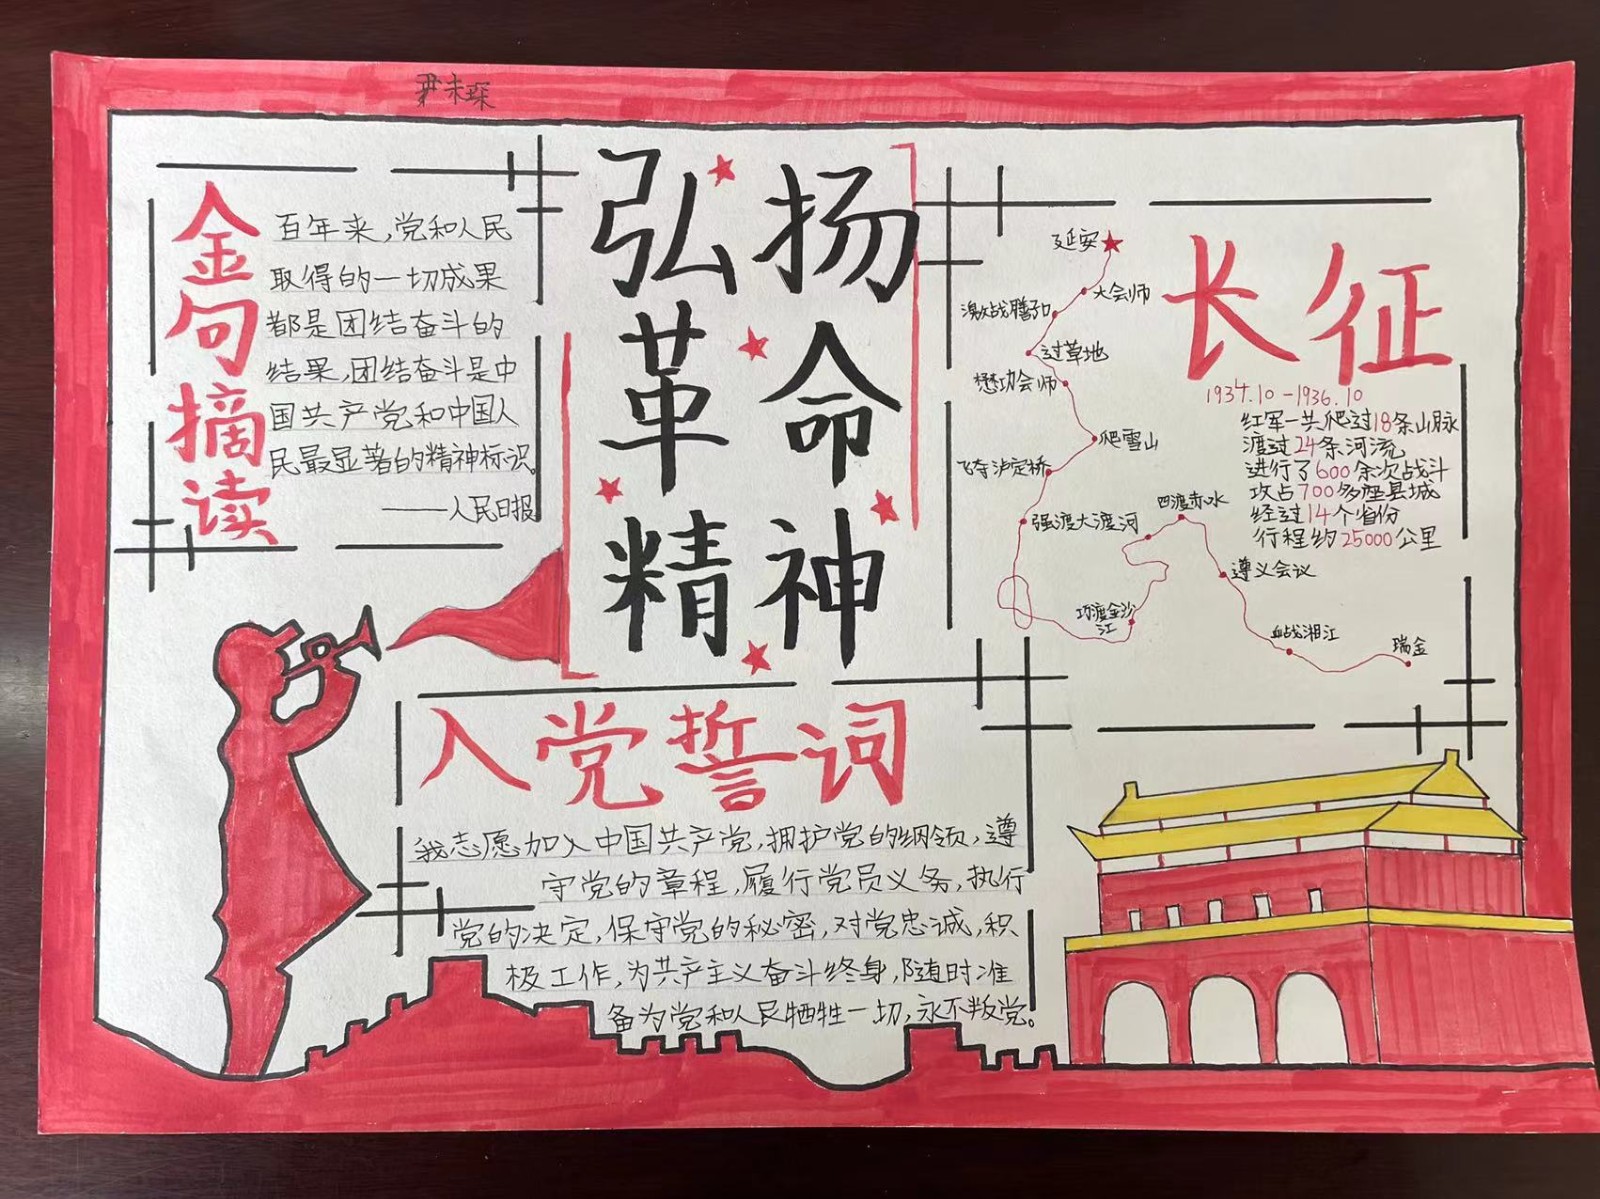 尹未琛
弘扬
革命
精神
金句摘读
百年来,党和人民
取得的一切成果
都是团结奋斗的
结果,团结奋斗是中
国共产党和中国人
民最显著的精神标识。
——人民日报
长征
1934.10-1936.10
红军一共爬过18条山脉
渡过24条河流
进行了600余次战斗
攻占700多座县城
经过14个省份
行程约25000公里
延安
大会师
激战腊子口
过草地
懋功会师
爬雪山
飞夺泸定桥
强渡大渡河
四渡赤水
遵义会议
巧渡金沙
江
血战湘江
瑞金
入党誓词
我志愿加入中国共产党,拥护党的纲领,遵
守党的章程,履行党员义务,执行
党的决定,保守党的秘密,对党忠诚,积
极工作,为共产主义奋斗终身,随时准
备为党和人民牺牲一切,永不叛党。